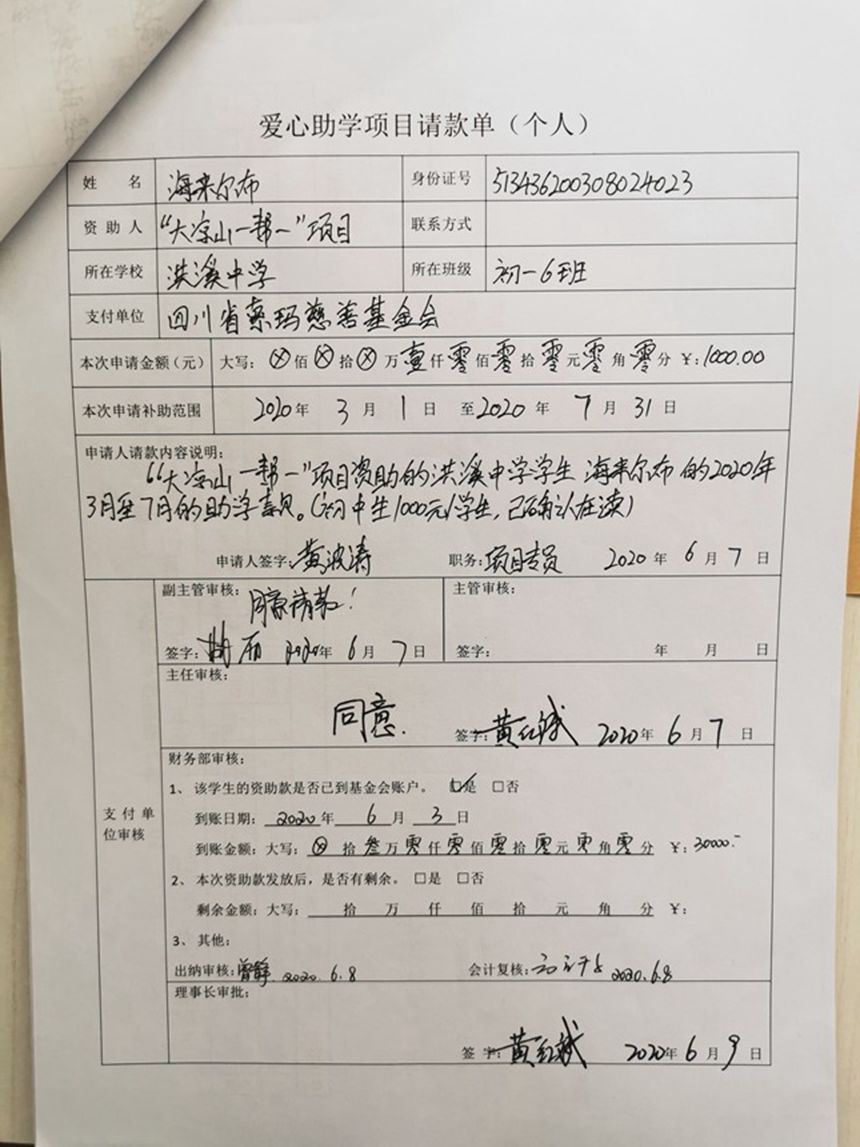 爱心助学项目请款单（个人）
姓 名 海来尔布 身份证号 513436200308024023
资助人 “大凉山一帮一”项目 联系方式
所在学校 洪溪中学 所在班级 初一6班
支付单位 四川省索玛慈善基金会
本次申请金额（元） 大写：⊗佰⊗拾⊗万壹仟零佰零拾零元零角零分 ￥：1000.00
本次申请补助范围 2020年 3月 1日 至2020年 7月 31日
申请人请款内容说明：
“大凉山一帮一”项目资助的洪溪中学学生 海来尔布 的2020年
3月至7月的助学款。（初中生1000元/学生，已确认在读）
申请人签字：黄波涛 职务：项目专员 2020年 6月 7日
副主管审核： 同意请款！ 主管审核：
签字： 2020年 6月 7日 签字： 年 月 日
主任审核：
同意. 签字：黄红斌 2020年 6月 7日
支付单位审核
财务部审核：
1、该学生的资助款是否已到基金会账户。☑是 □否
到账日期：2020年 6月 3日
到账金额：大写：⊗拾叁万零仟零佰零拾零元零角零分 ￥：30000.-
2、本次资助款发放后，是否有剩余。□是 □否
剩余金额：大写： 拾 万 仟 佰 拾 元 角 分 ￥：
3、其他：
出纳审核：曾静 2020.6.8 会计复核： 2020.6.8
理事长审批：
签字：黄红斌 2020年 6月 9日